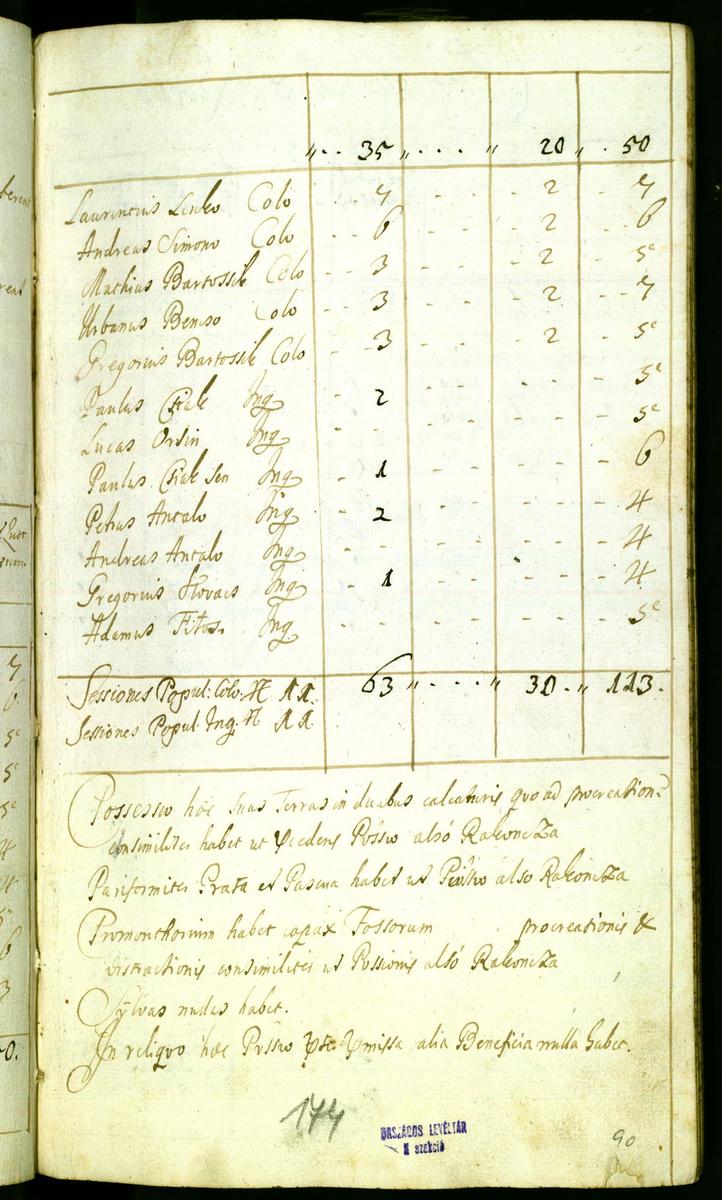 " . . 35 " . . . . " 20 " . 50
Laurentius Linko Colo . . 7 - - - 2 - - 7
Andreas Simono Colo - - 6 - - - 2 - - 6
Mathias Bartossik Colo - - 3 - - - 2 - - 5
Urbanus Benco Colo - - 3 - - - 2 - - 7
Gregorius Bartossik Colo - - 3 - - - 2 - - 5
Paulus Csak Ing - 2 - - - - - - 5
Lucas Orsin Ing - - - - - - - - 5
Paulus Csak Sen Ing - 1 - - - - - - 6
Petrus Antalo Ing - 2 - - - - - - 4
Andreas Antalo Ing - - - - - - - - 4
Gregorius Hovacs Ing - 1 - - - - - - 4
Adamus Fitos. Ing - - - - - - - - 5
Sessiones Popul: Colo. N 11. 63 " . . . . " 30 . " 113.
Sessiones Popul. Ing. N 11
Possessio hæc suas Terras in duabus calcaturis quo ad procreation:
consimiliter habet ut Possio alsó Rakoncza
Pariformiter Prata et Pascua habet ut Possio alsó Rakoncza
Promonthorium habet capax Fossorum . procreationis &
distractionis consimiliter ut Possionis alsó Rakoncza
Sylvas nullas habet.
In reliquo hæc Possio alia Beneficia nulla habet.
174
ORSZÁGOS LEVÉLTÁR
szekció
90